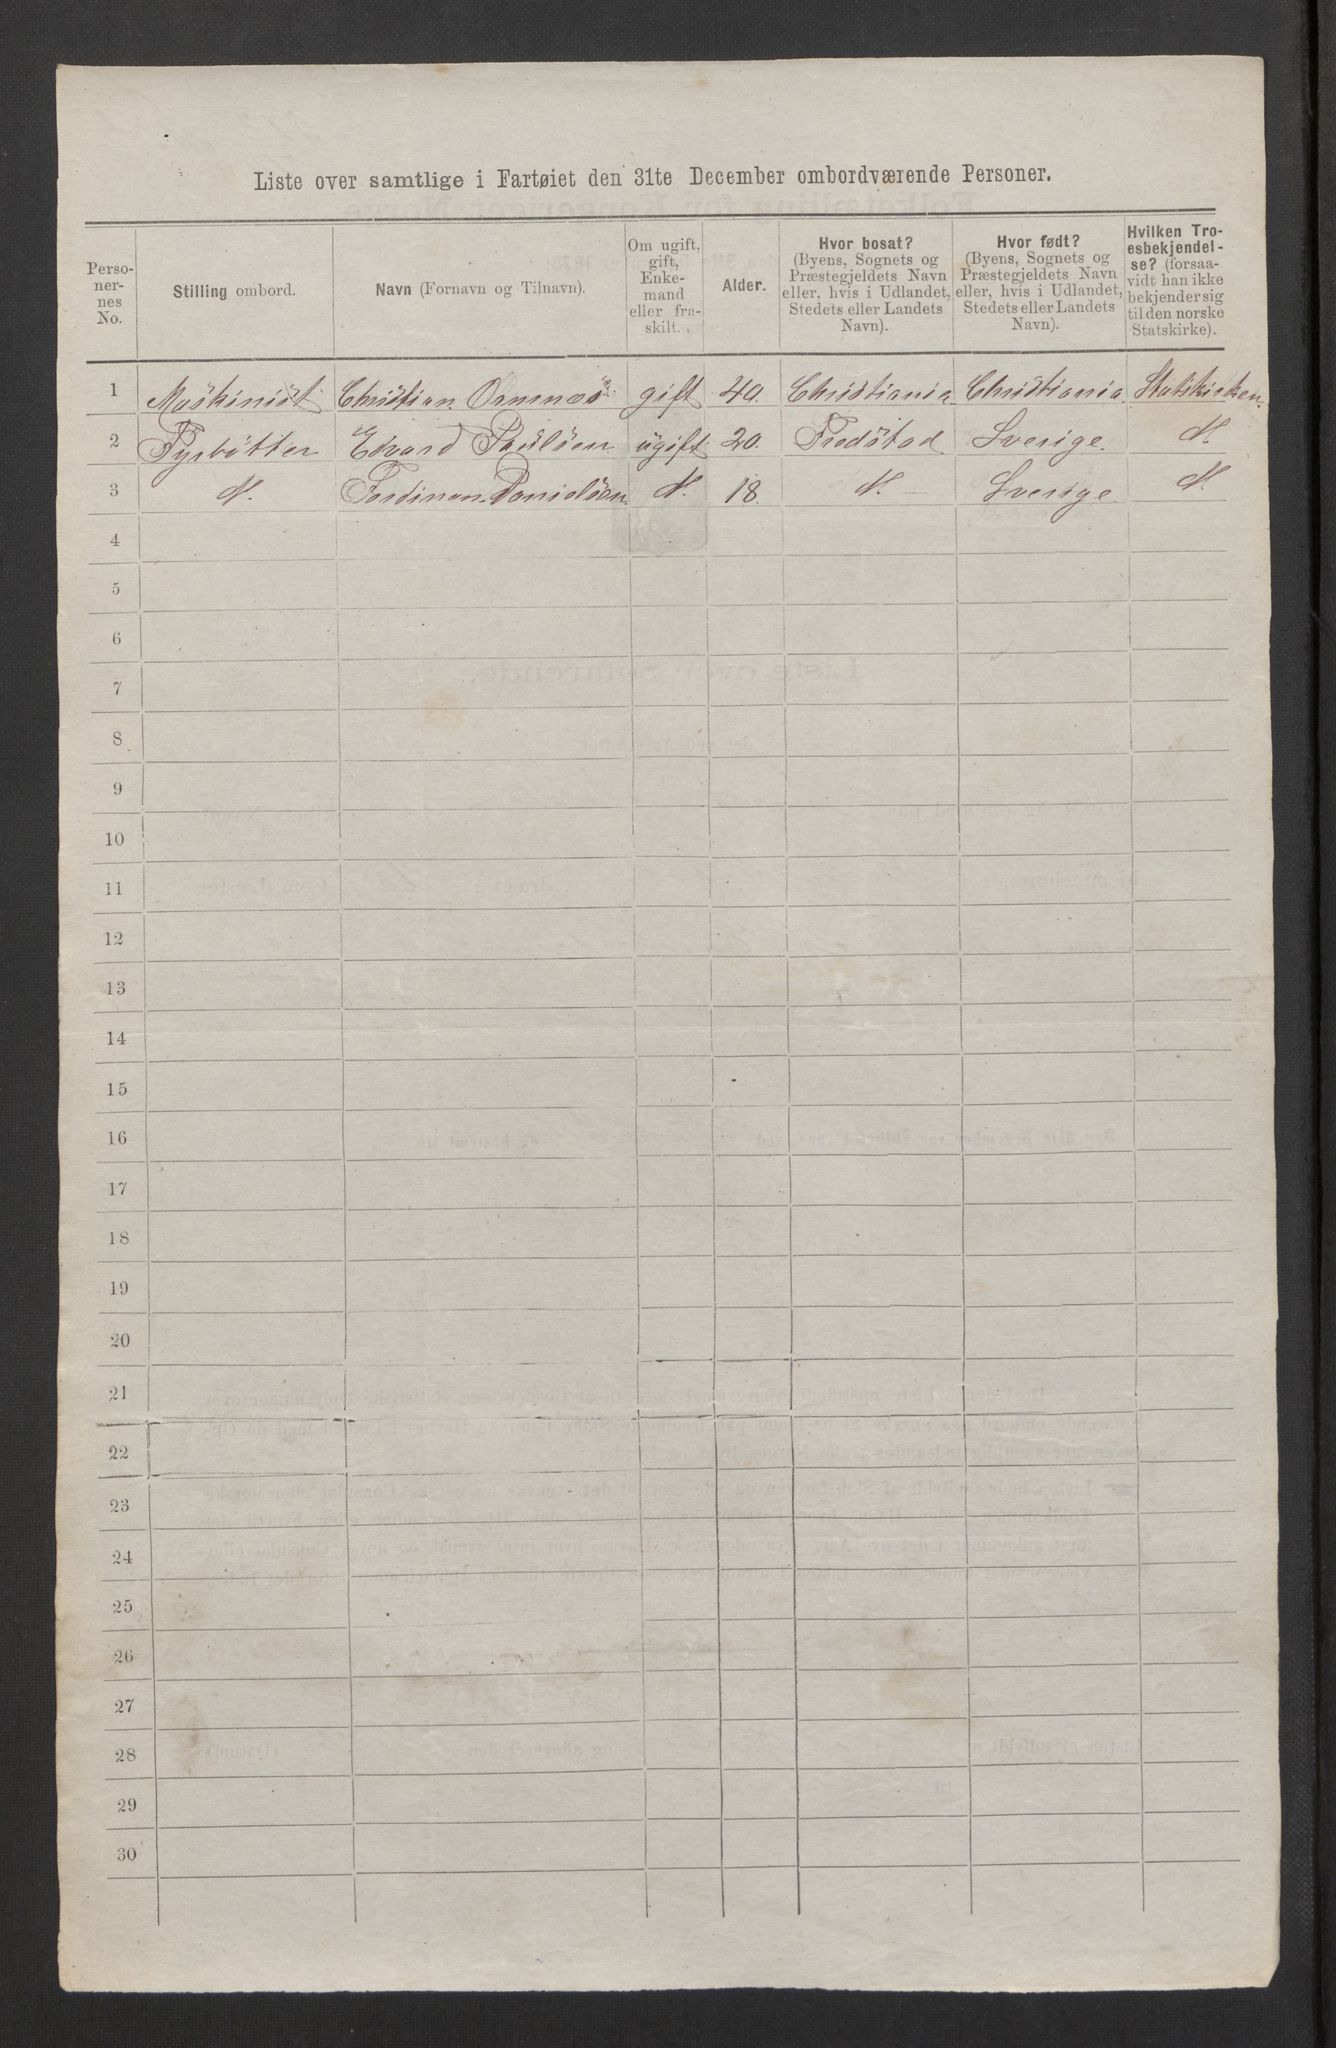 Liste over samtlige i Fartøiet den 31te December ombordværende Personer.
Perso-
ner-
nes
No.
Stilling ombord.
Navn (Fornavn og Tilnavn).
Om ugift,
gift,
Enke-
mand
eller fra-
skilt.
Alder.
Hvor bosat?
(Byens, Sognets og
Præstegjeldets Navn
eller, hvis i Udlandet,
Stedets eller Landets
Navn).
Hvor født?
(Byens, Sognets og
Præstegjeldets Navn
eller, hvis i Udlandet,
Stedets eller Landets
Navn).
Hvilken Tro-
esbekjendel-
se? (forsaa-
vidt han ikke
bekjender sig
til den norske
Statskirke).
1 Maskinist Christian gift 40. Christiania Christiania Statskirken.
2 Fyrbötter Edvard Paulsen ugift 20. Fredstad Sverige.
3 Ferdinan Danielsen 18. Sverige
4
5
6
7
8
9
10
11
12
13
14
15
16
17
18
19
20
21
22
23
24
25
26
27
28
29
30